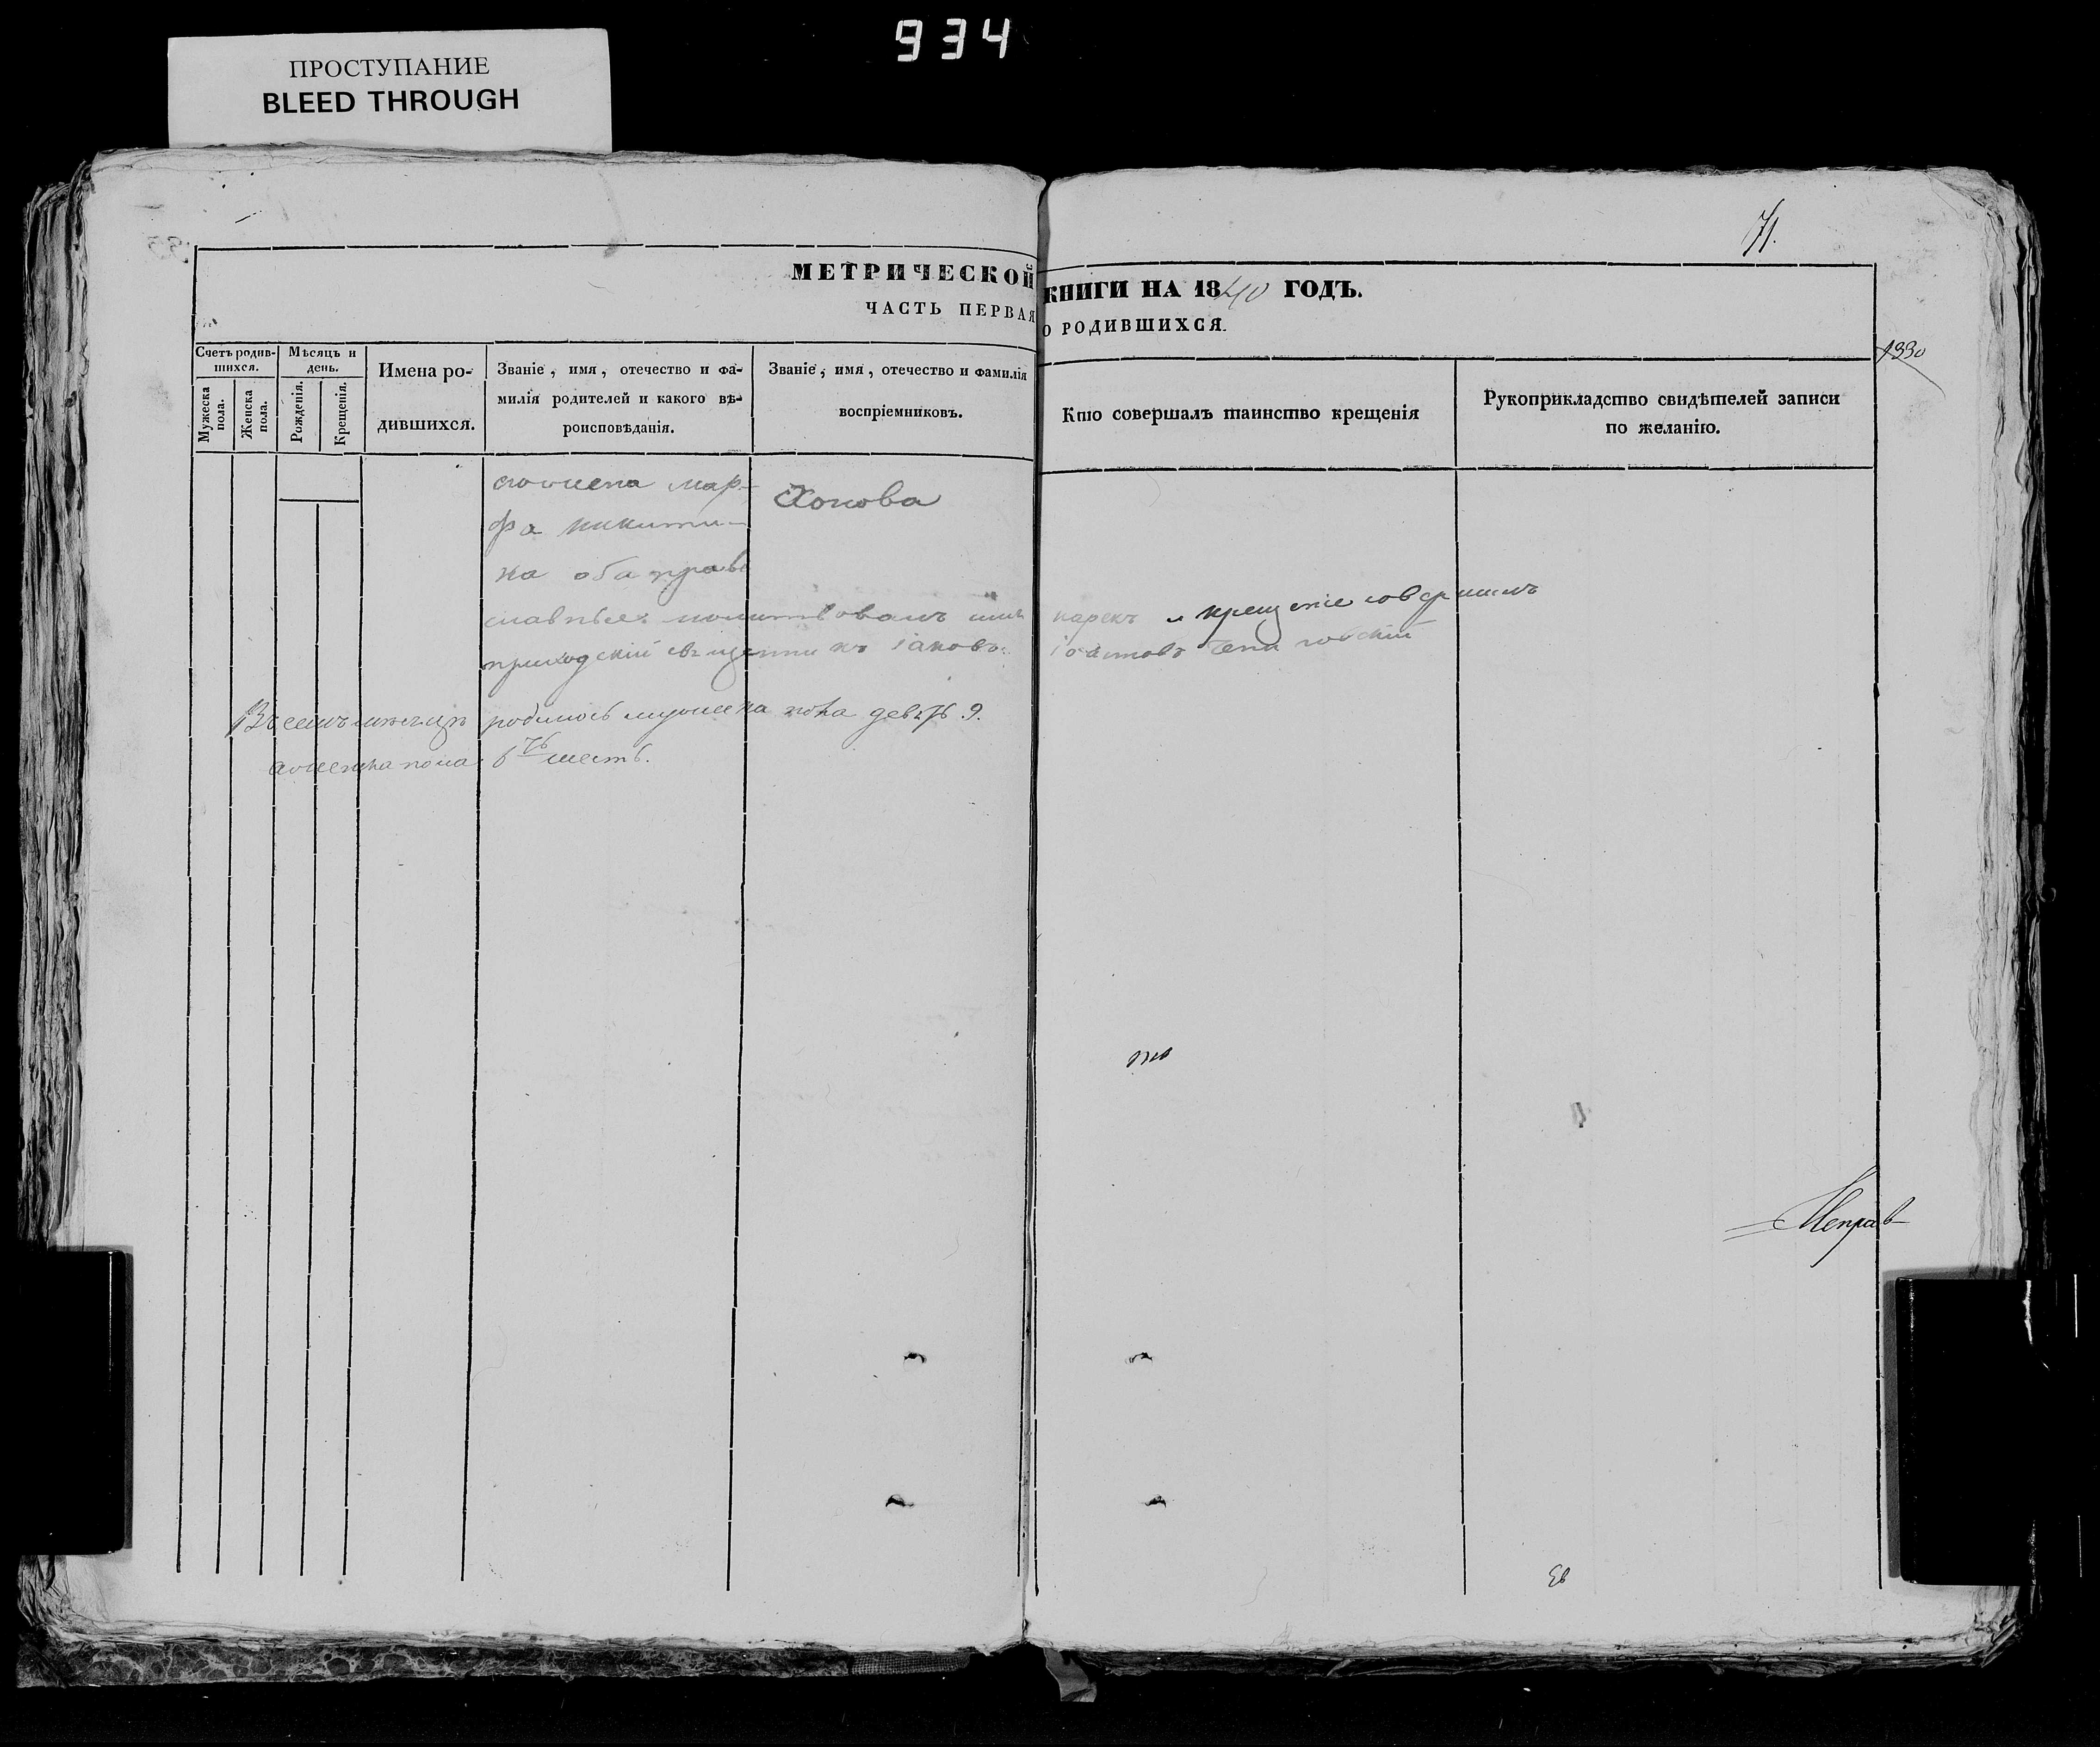 934
ПРОСТУПАНИЕ
BLEED THROUGH
71.
МЕТРИЧЕСКОЙ КНИГИ НА 1840 ГОДЪ.
ЧАСТЬ ПЕРВАЯ О РОДИВШИХСЯ.
1330
Счетъ родив-
шихся.
Мужеска пола.
Женска пола.
Мѣсяцъ и день.
Рожденія.
Крещенія.
Имена ро-
дившихся.
Званіе, имя, отечество и фа-
милія родителей и какого вѣ-
роисповѣданія.
Званіе, имя, отечество и фамилія
воспріемниковъ.
Кто совершалъ таинство крещенія
Рукоприкладство свидѣтелей записи
по желанію.
его жена Мар-
фа Никити-
на оба право
славные
Хохова
молитвовалъ имя нарекъ и крещеніе совершилъ
приходскій священникъ Іаковъ
Въ семъ мѣсяцѣ родилось мужеска пола девять 9.
а женска пола 6ть шесть.